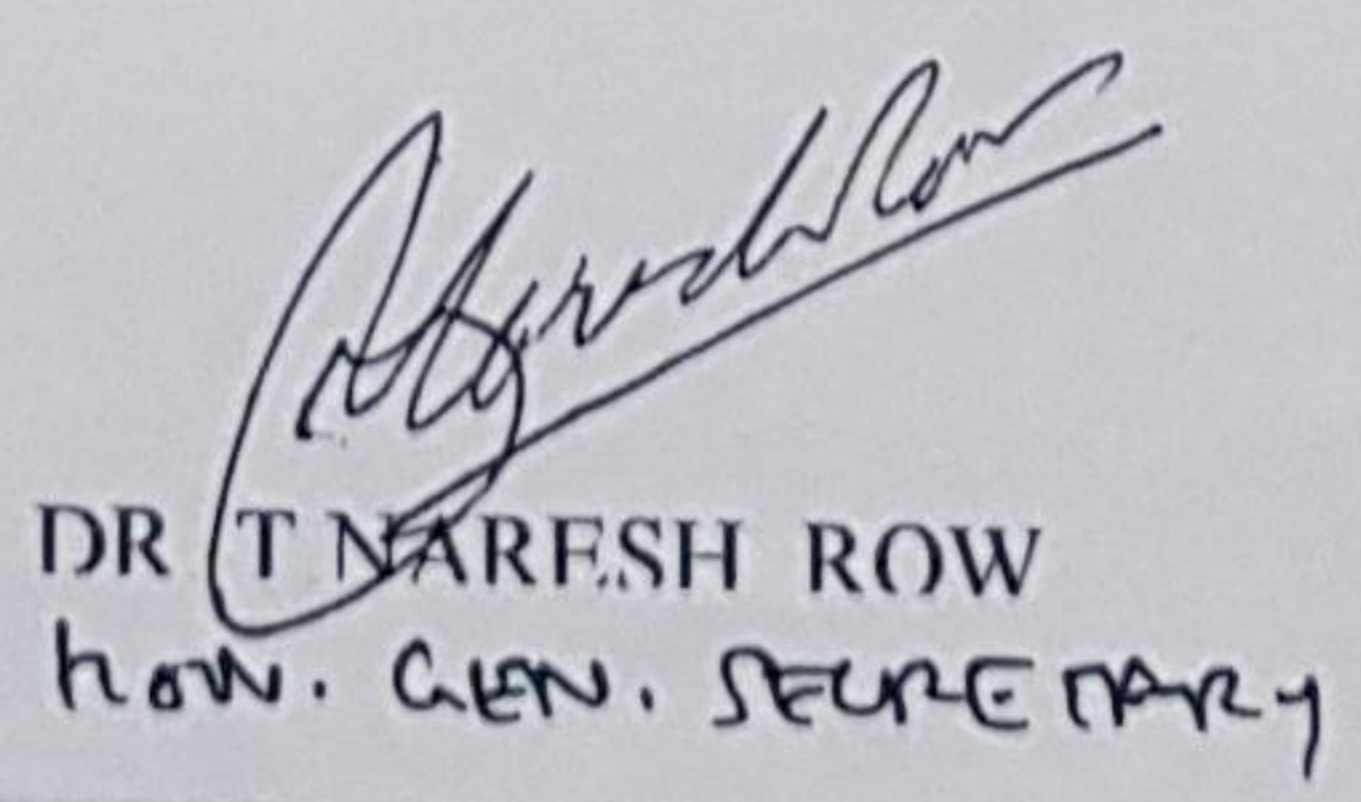 DR T NARESH ROW
HON. GEN. SECRETARY